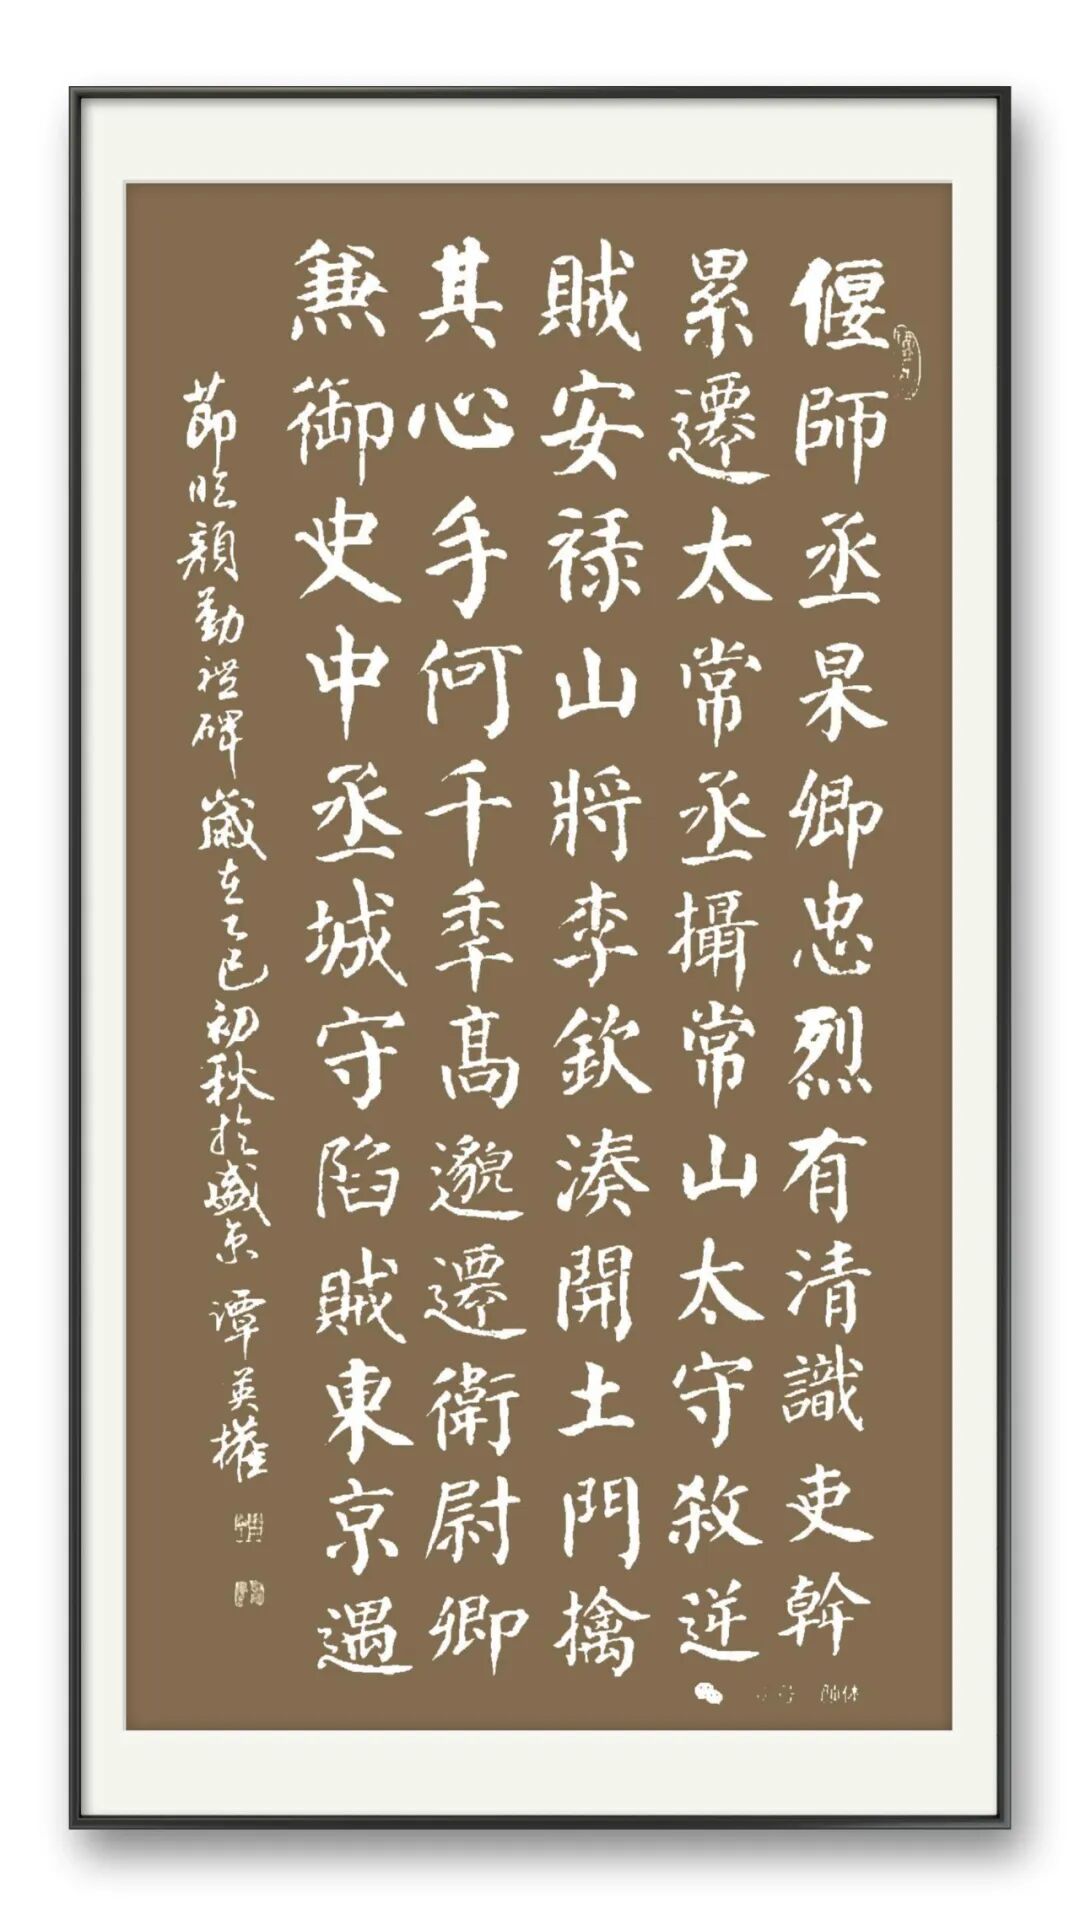 偃師丞杲卿忠烈有清識吏幹
累遷太常丞攝常山太守殺逆
賊安禄山將李欽湊開土門擒
其心手何千秊高邈遷衛尉卿
兼御史中丞城守陷賊東京遇
節臨顏勤禮碑歲在乙巳初秋於盛京 譚英權